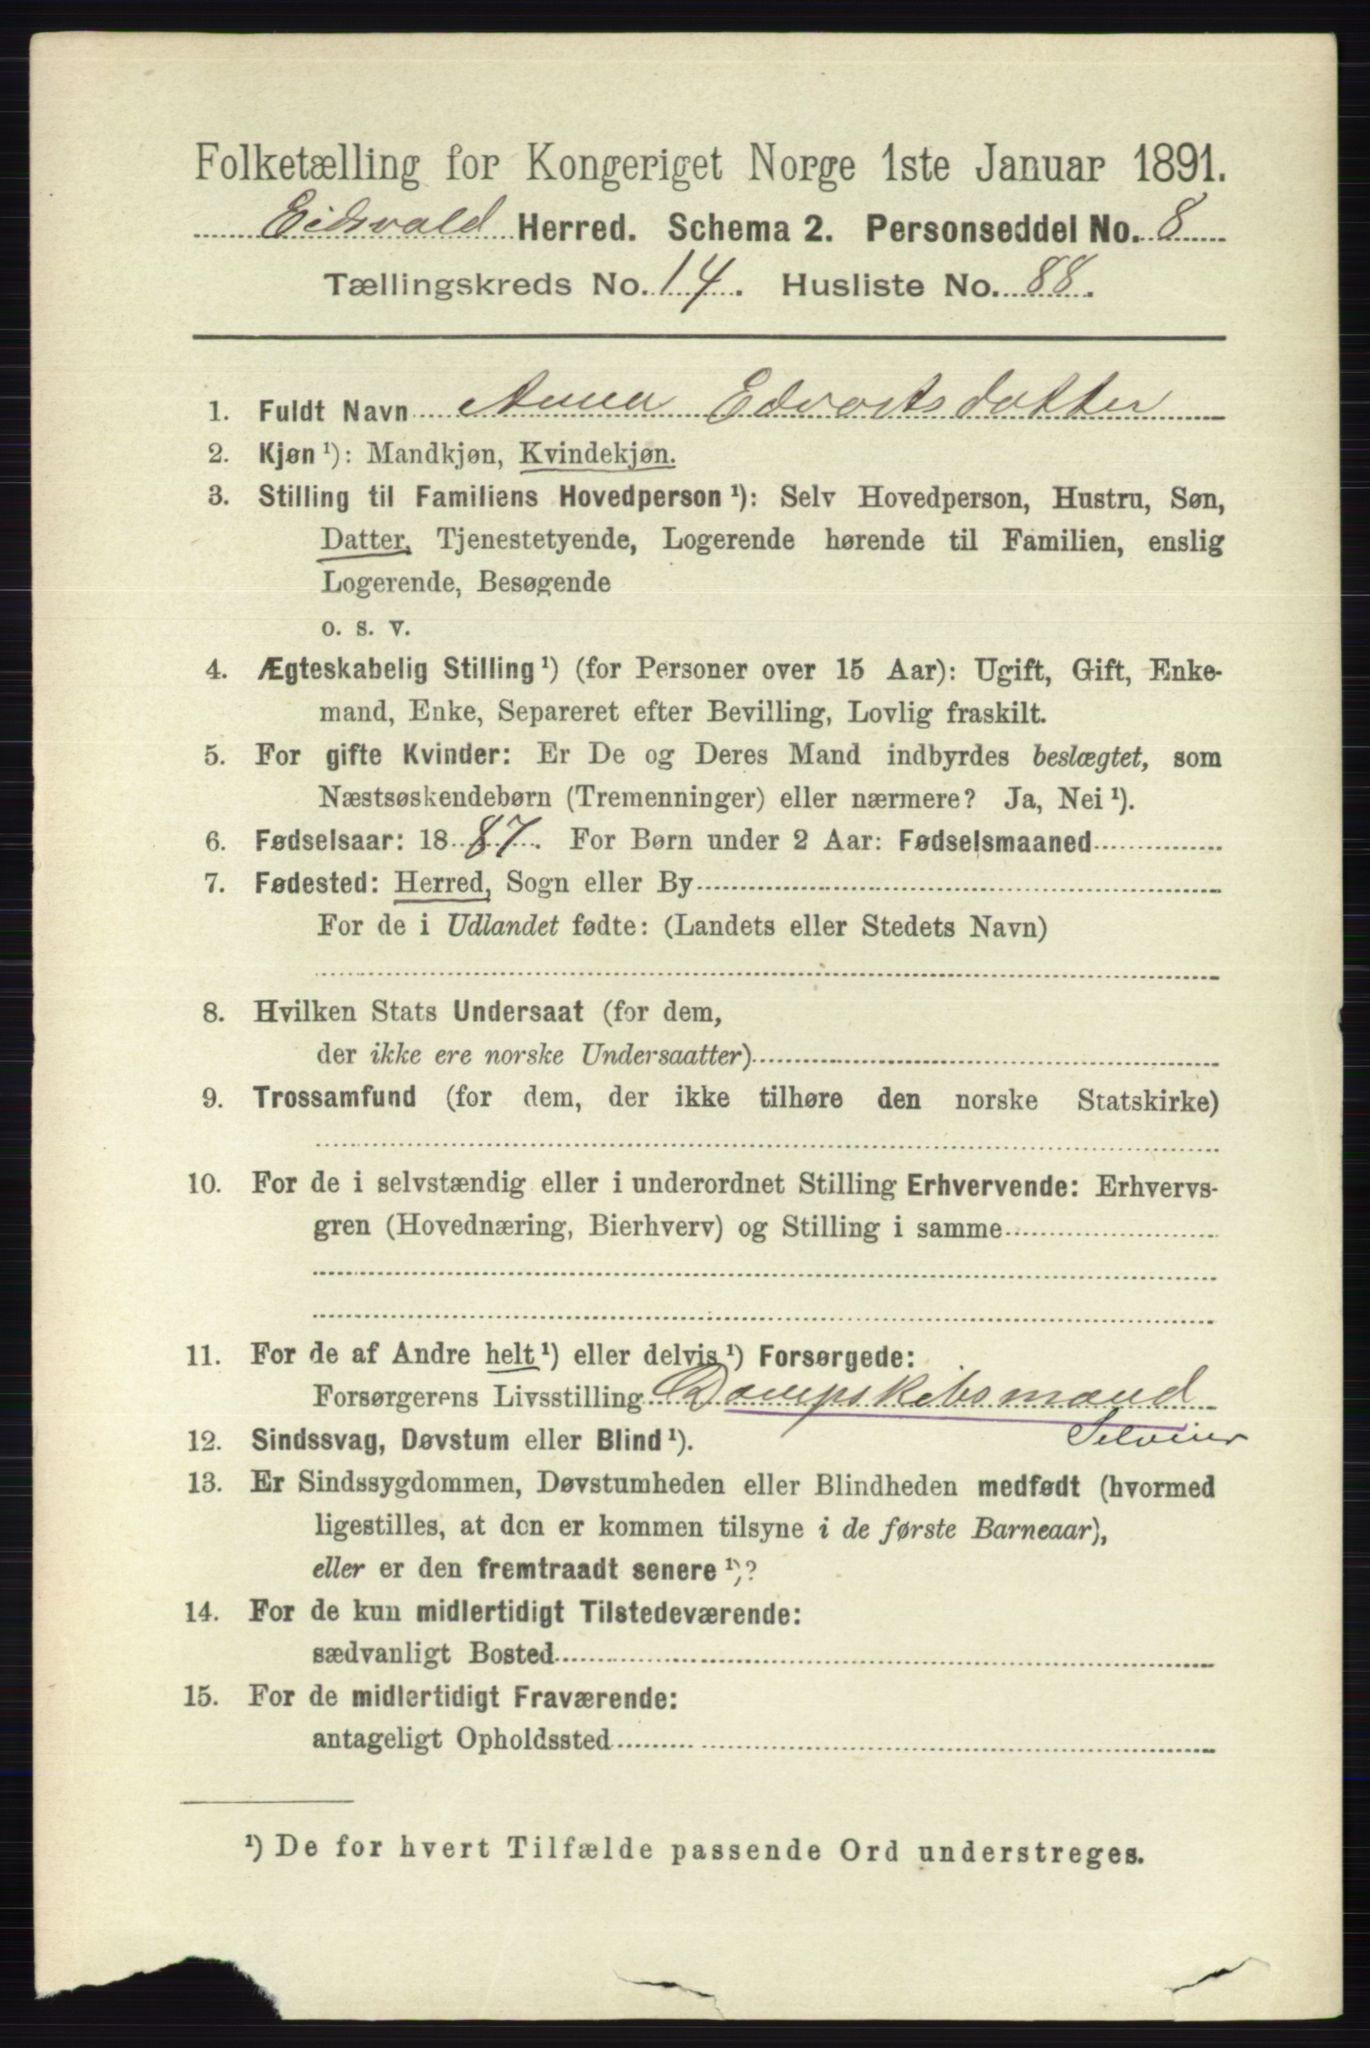 Folketælling for Kongeriget Norge 1ste Januar 1891.
Eidsvold Herred. Schema 2. Personseddel No. 8
Tællingskreds No. 14. Husliste No. 88.
1. Fuldt Navn Anna Edvartsdatter
2. Kjøn ¹): Mandkjøn, Kvindekjøn.
3. Stilling til Familiens Hovedperson ¹): Selv Hovedperson, Hustru, Søn,
Datter, Tjenestetyende, Logerende hørende til Familien, enslig
Logerende, Besøgende
o. s. v.
4. Ægteskabelig Stilling ¹) (for Personer over 15 Aar): Ugift, Gift, Enke-
mand, Enke, Separeret efter Bevilling, Lovlig fraskilt.
5. For gifte Kvinder: Er De og Deres Mand indbyrdes beslægtet, som
Næstsøskendebørn (Tremenninger) eller nærmere? Ja, Nei ¹).
6. Fødselsaar: 1887. For Børn under 2 Aar: Fødselsmaaned
7. Fødested: Herred, Sogn eller By
For de i Udlandet fødte: (Landets eller Stedets Navn)
8. Hvilken Stats Undersaat (for dem,
der ikke ere norske Undersaatter)
9. Trossamfund (for dem, der ikke tilhøre den norske Statskirke)
10. For de i selvstændig eller i underordnet Stilling Erhvervende: Erhvervs-
gren (Hovednæring, Bierhverv) og Stilling i samme
11. For de af Andre helt ¹) eller delvis ¹) Forsørgede:
Forsørgerens Livsstilling Dampskibsmand
12. Sindssvag, Døvstum eller Blind ¹). Selveier
13. Er Sindssygdommen, Døvstumheden eller Blindheden medfødt (hvormed
ligestilles, at den er kommen tilsyne i de første Barneaar),
eller er den fremtraadt senere ¹)?
14. For de kun midlertidigt Tilstedeværende:
sædvanligt Bosted
15. For de midlertidigt Fraværende:
antageligt Opholdssted
¹) De for hvert Tilfælde passende Ord understreges.